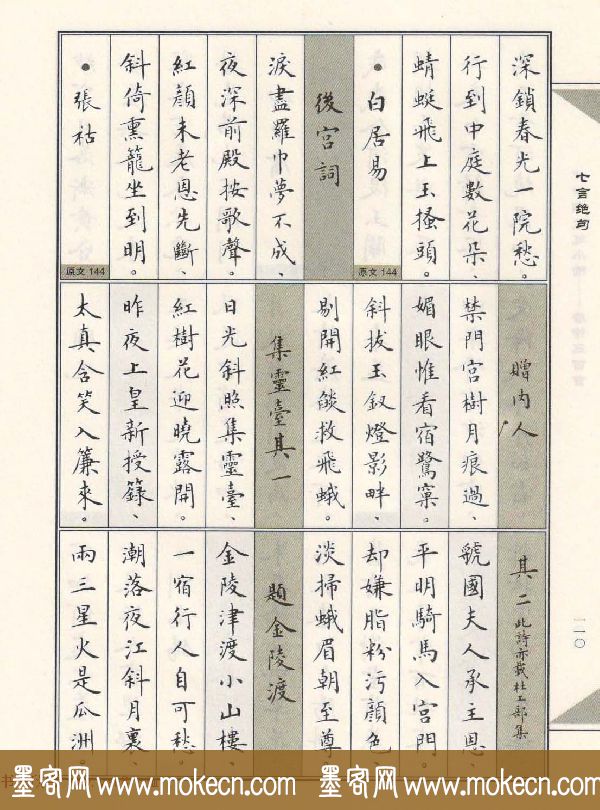 七言絶句
一一〇
深鎖春光一院愁。
行到中庭數花朵、
蜻蜓飛上玉搔頭。
白居易
原文 144
後宮詞
淚盡羅巾夢不成、
夜深前殿按歌聲。
紅顏未老恩先斷、
斜倚熏籠坐到明。
張祜
原文 144
贈內人
禁門宮樹月痕過、
媚眼惟看宿鷺窠。
斜拔玉釵燈影畔、
剔開紅燄救飛蛾。
集靈臺其一
日光斜照集靈臺、
紅樹花迎曉露開。
昨夜上皇新授籙、
太真含笑入簾來。
其二 此詩亦載杜工部集
虢國夫人承主恩、
平明騎馬入宮門。
却嫌脂粉污顏色、
淡掃蛾眉朝至尊
題金陵渡
金陵津渡小山樓、
一宿行人自可愁。
潮落夜江斜月裏、
兩三星火是瓜洲。
墨客网 www.mokecn.com 墨客网 www.mokecn.com